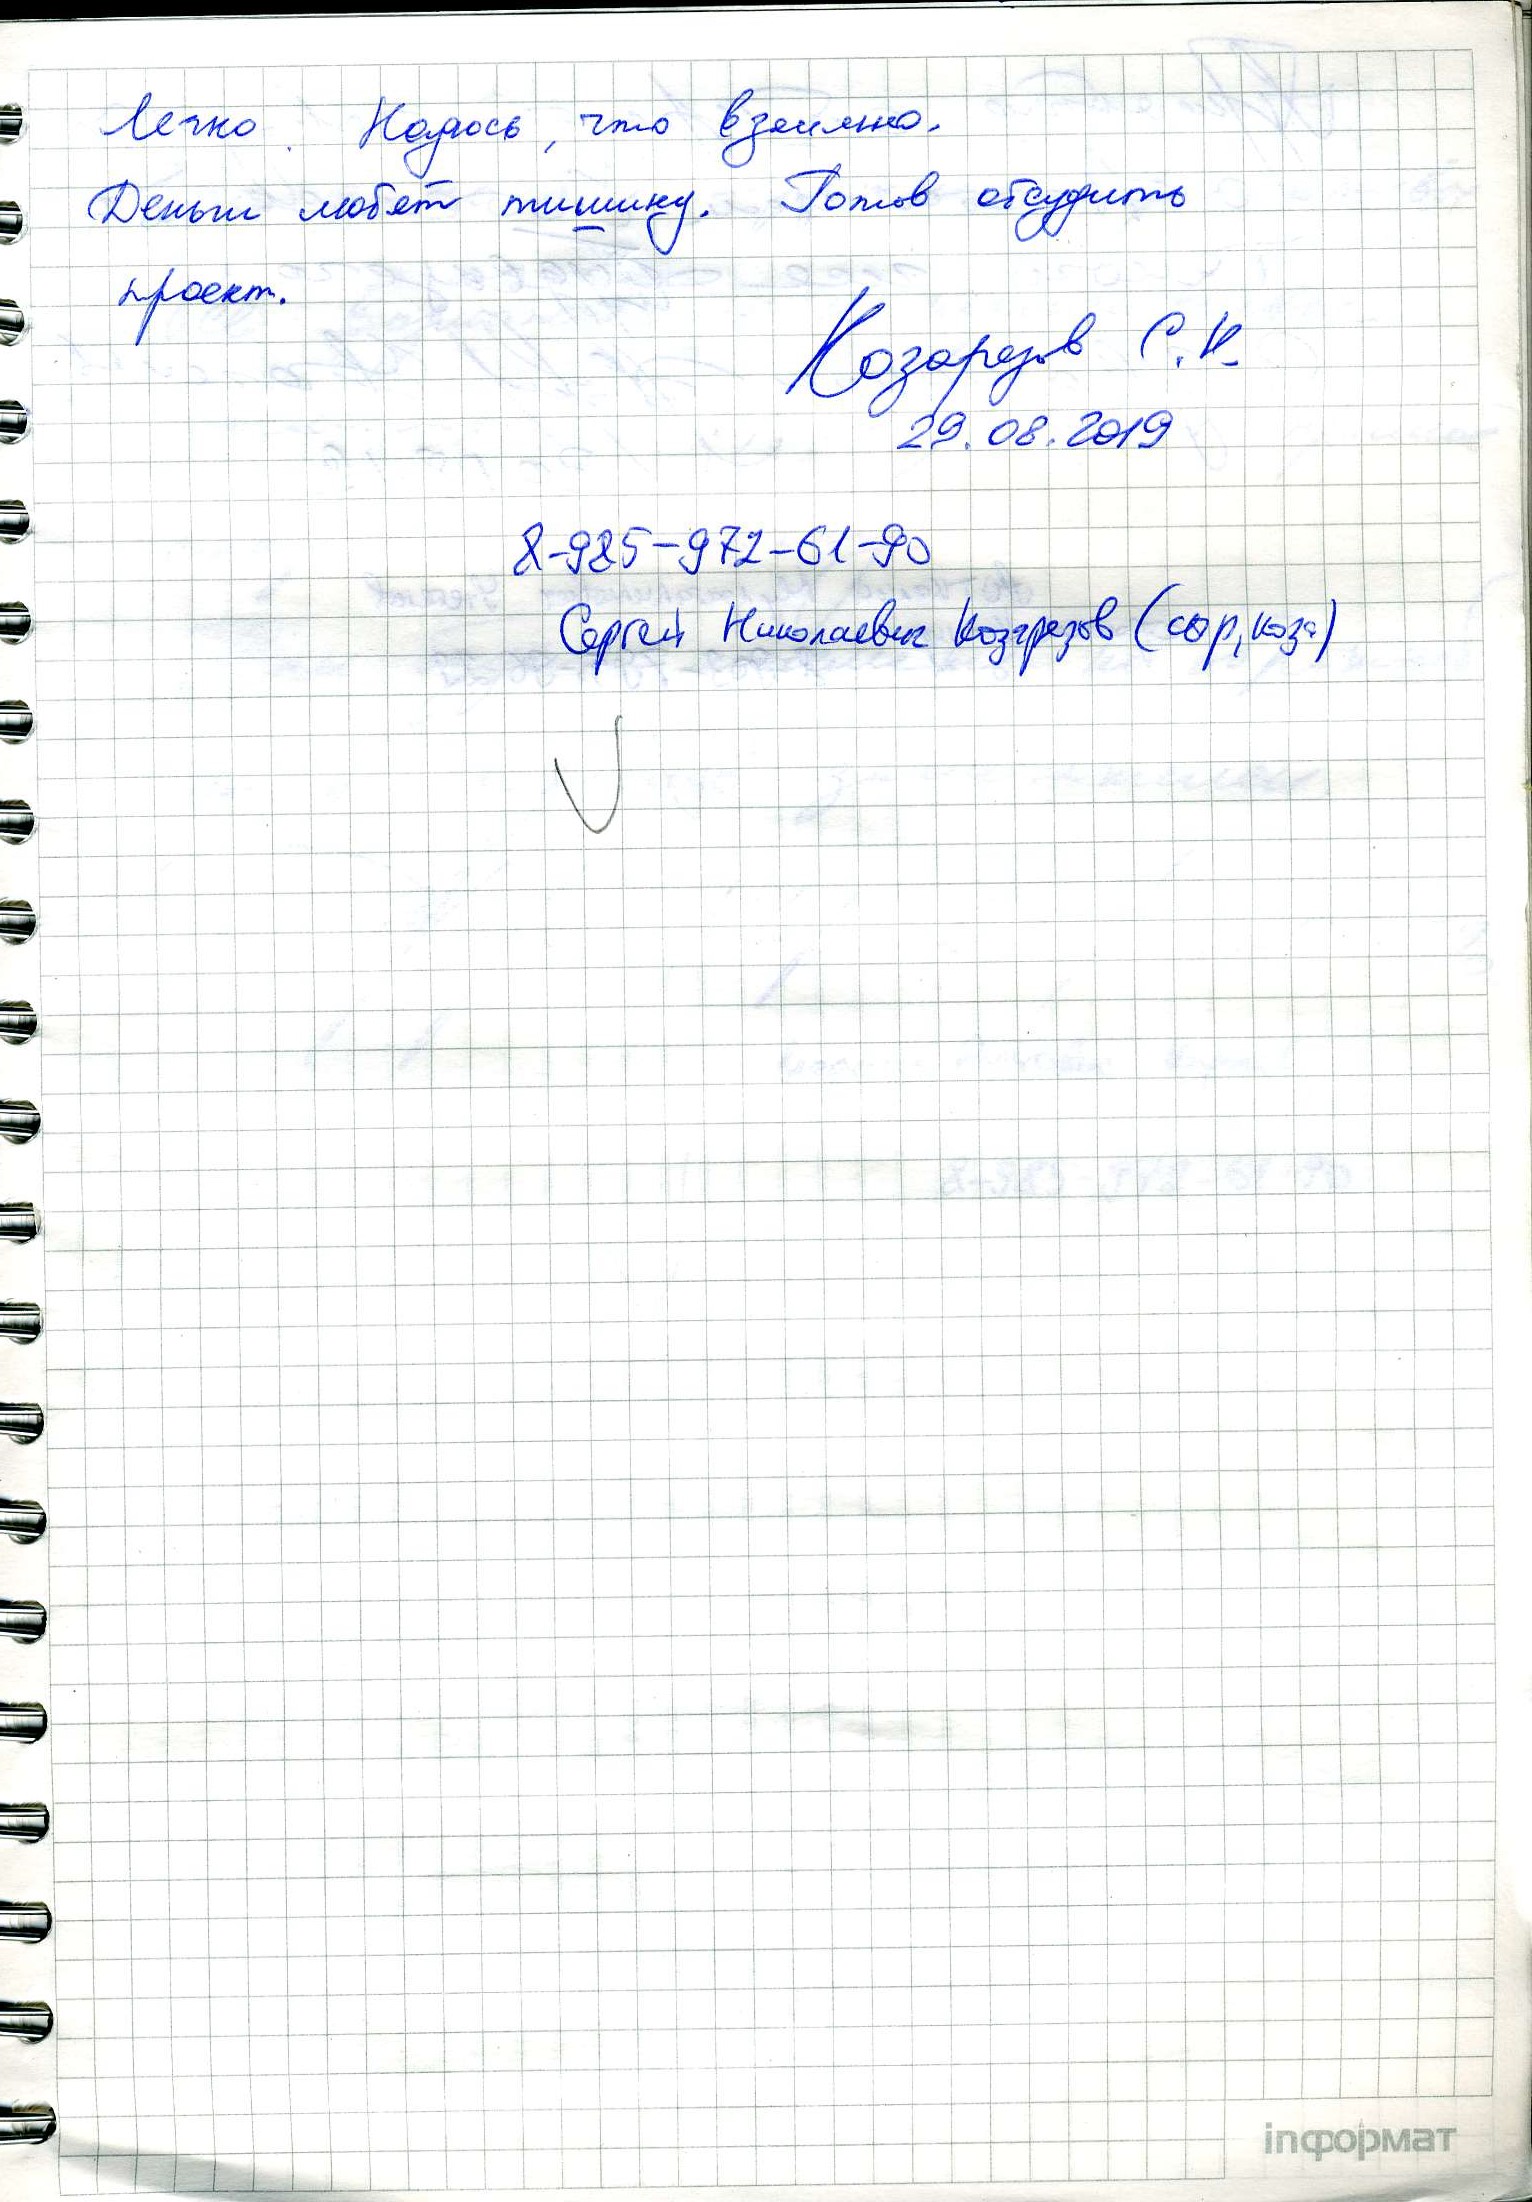 Легко. Надеюсь, что взаимно.
Деньги любят тишину. Готов обсудить
проект.
Козарезов С.Н.
29.08.2019
8-985-972-61-90
Сергей Николаевич Козарезов (сыр, коза)
inформат